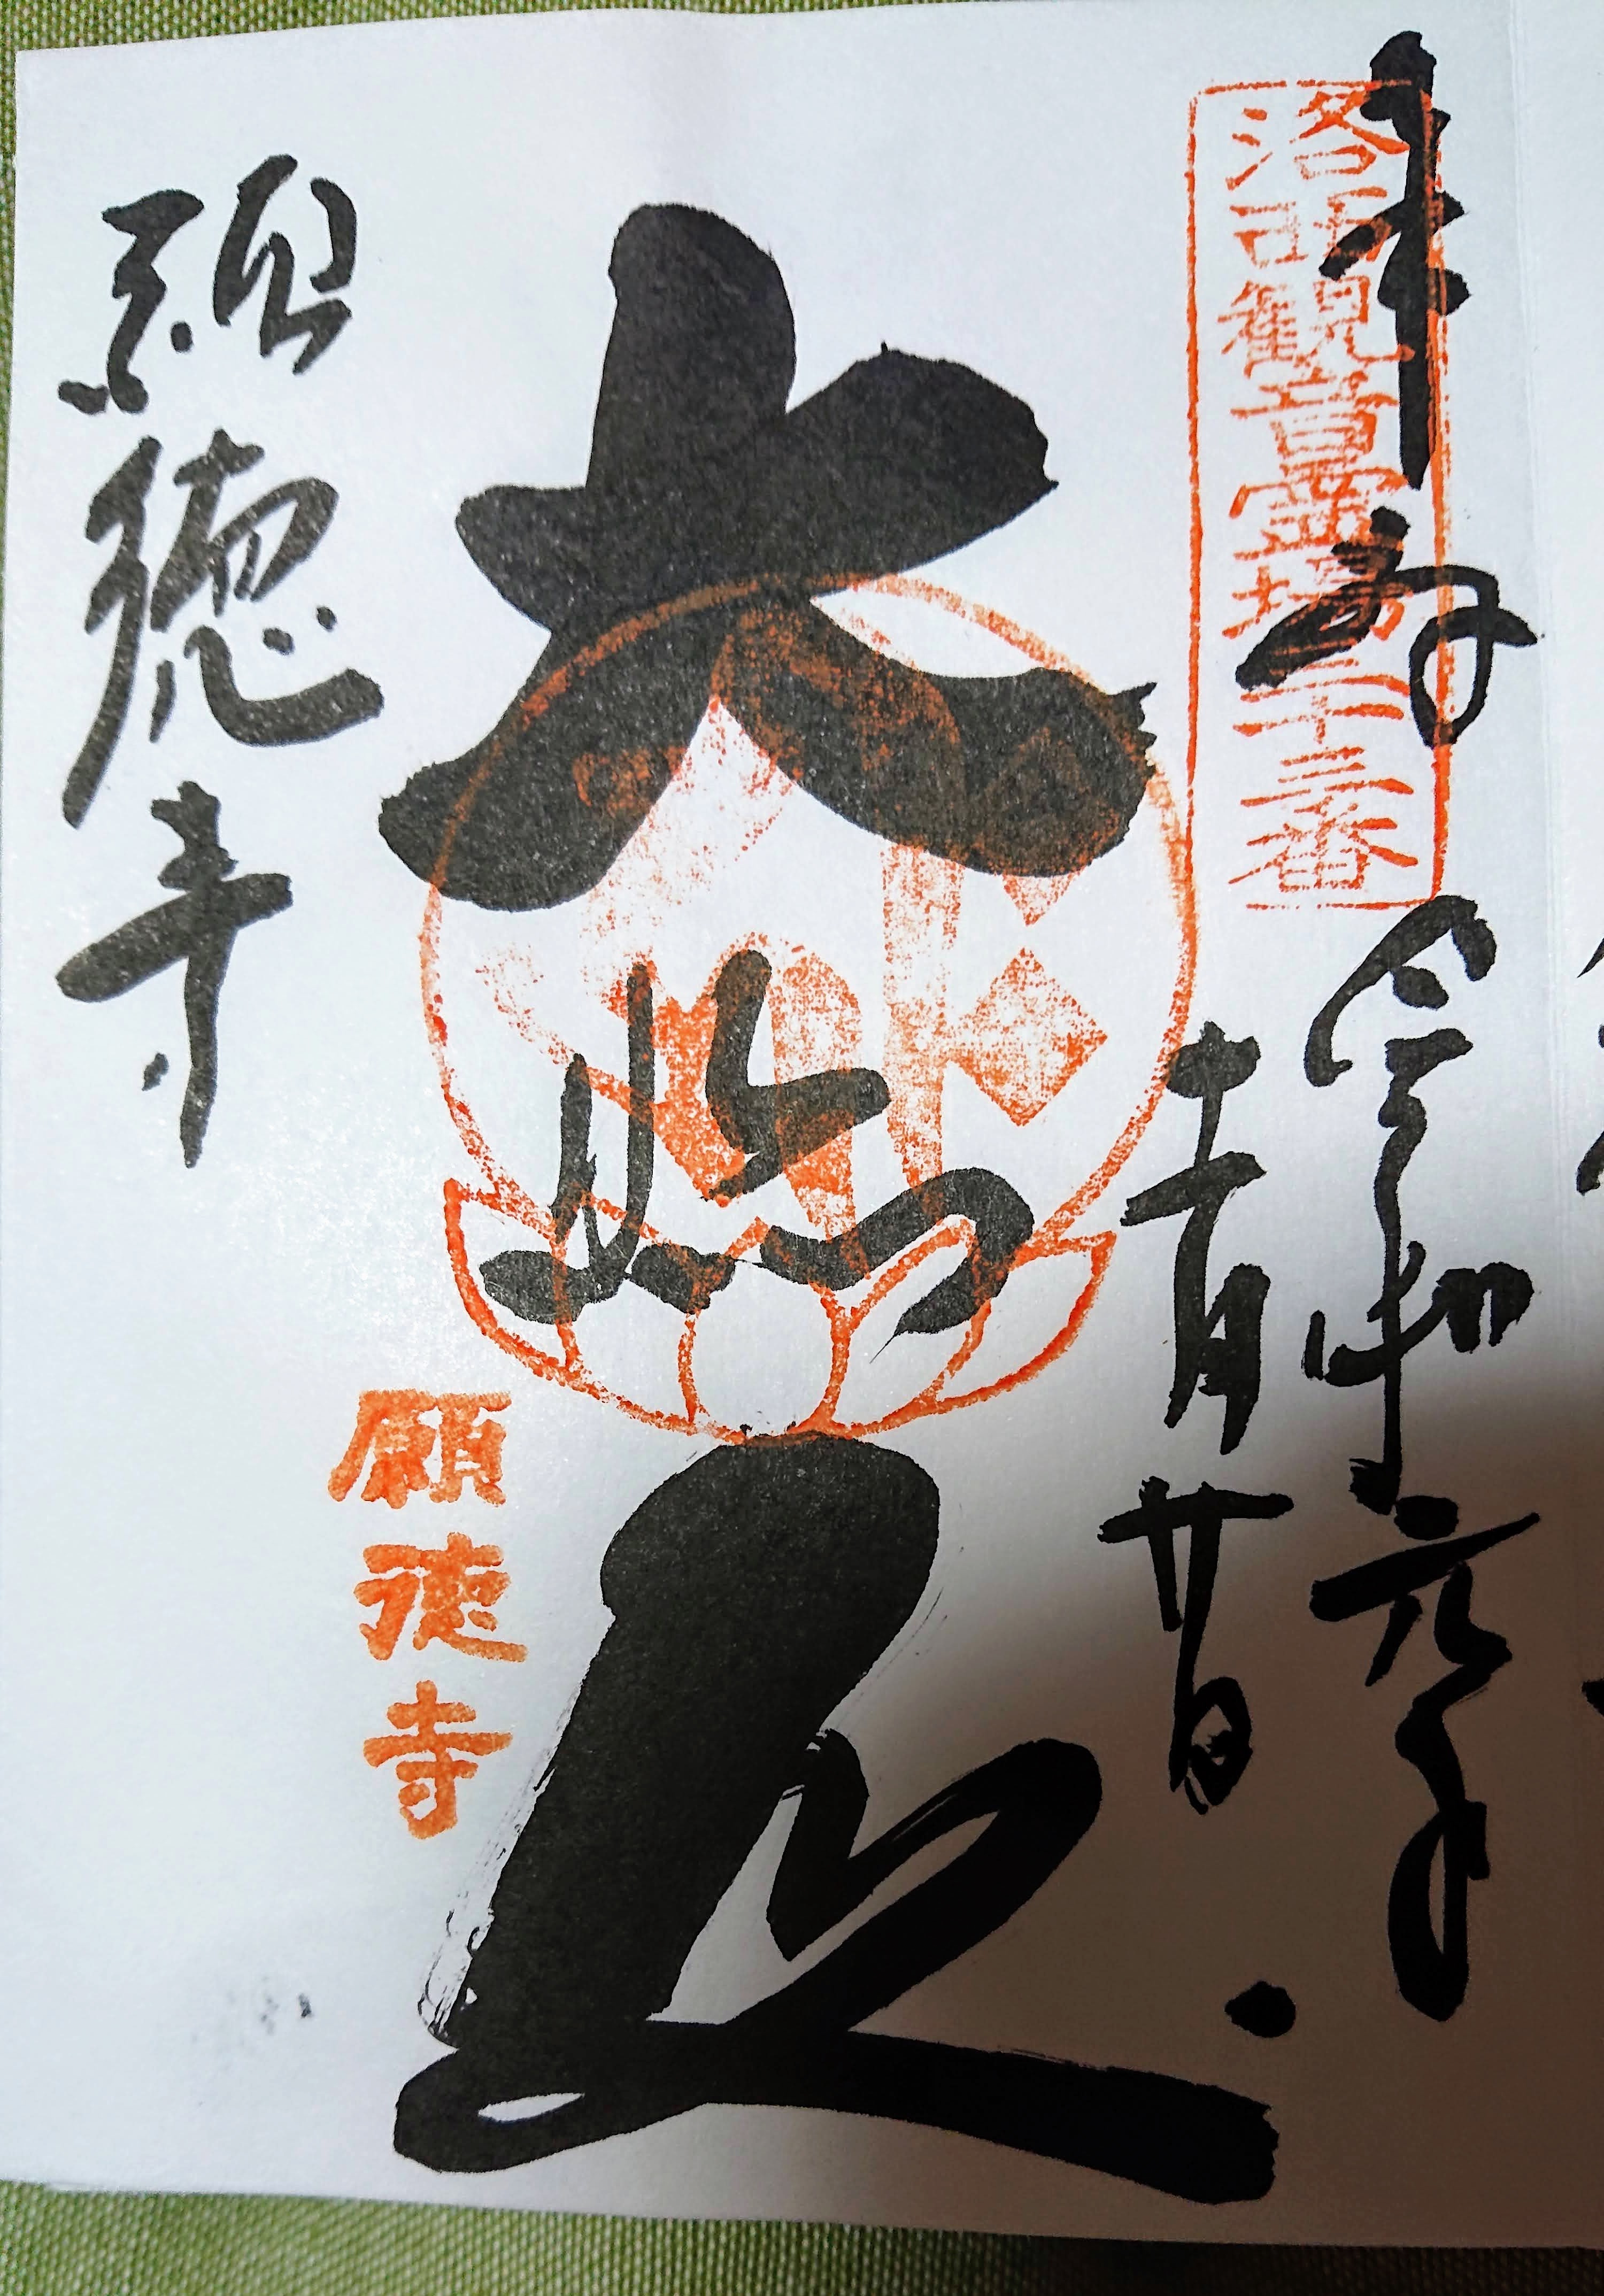 奉拝
洛西観音霊場三十三番
令和元年
十一月廿日
大悲殿
願徳寺
願徳寺